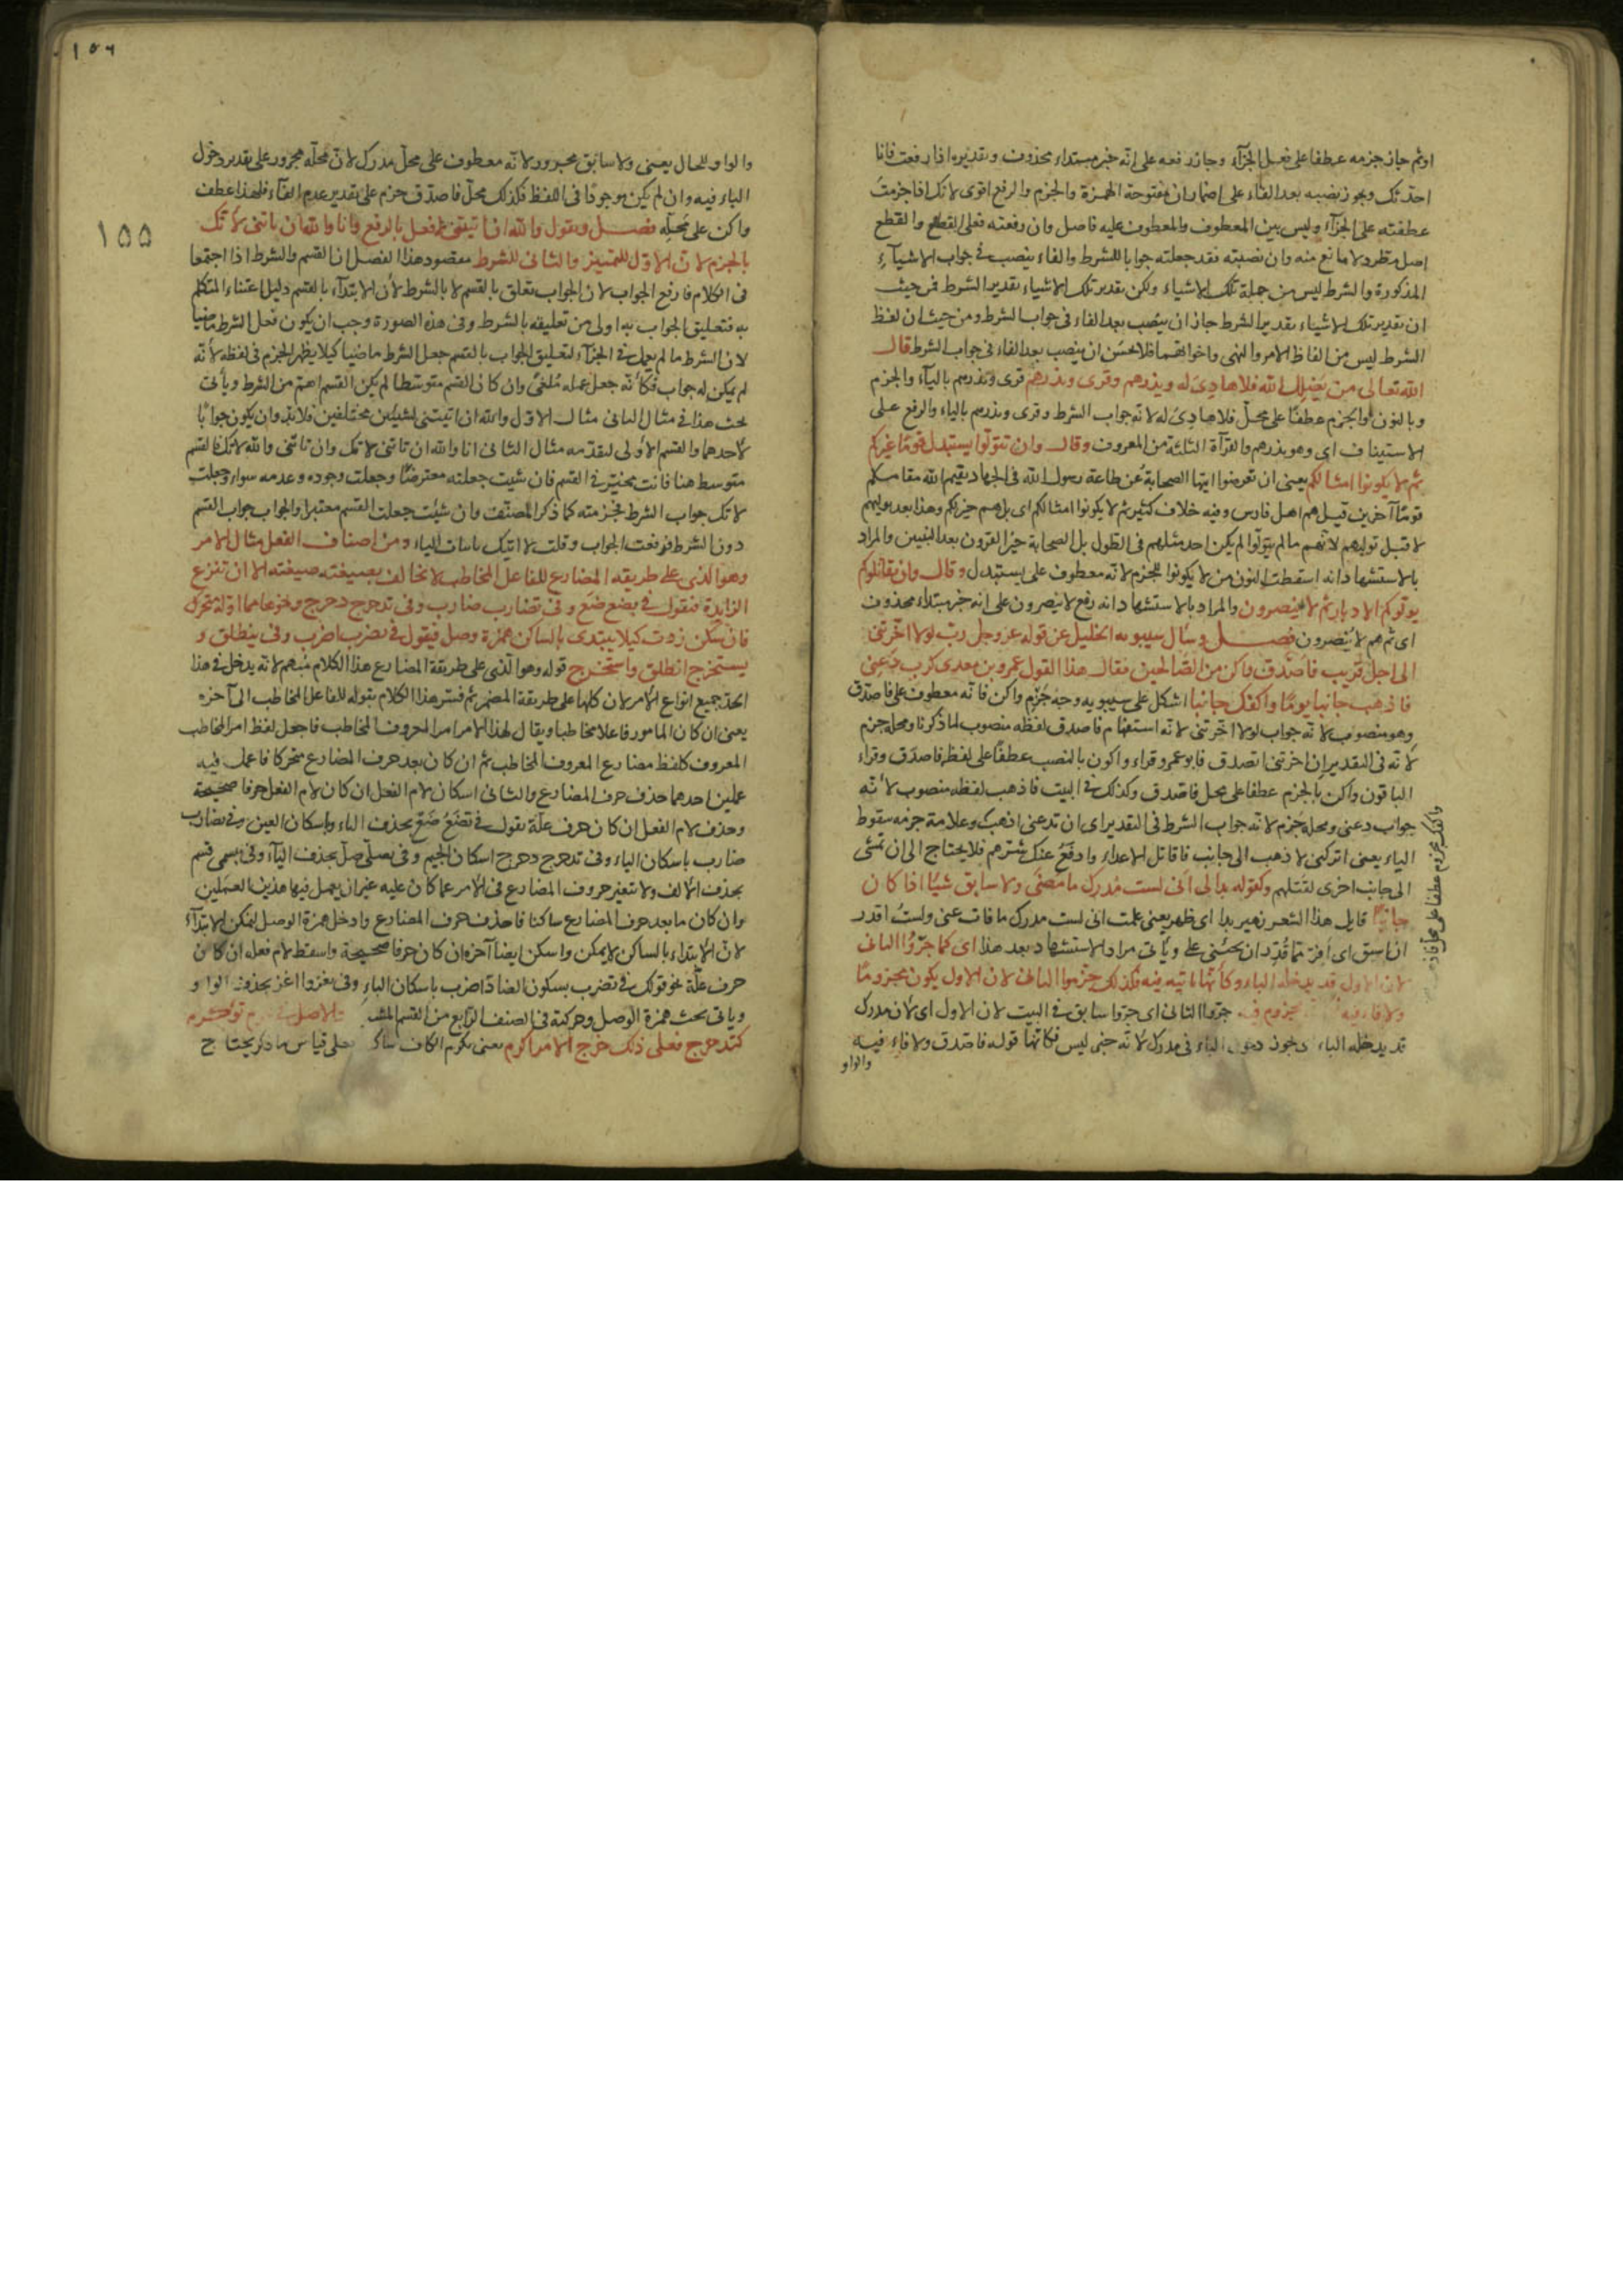 اوثم جاز جزمه عطفا على فعل الجزآء وجاز رفعه على انّه خبر مبتداء محذوف وتقديره اذا رفعت فانا
احدّثك ويجوز نصبه بعد الفاء على اضمار ان مفتوحة الهمزة والجزم والرفع اقوى لانك اذا جزمت
عطفته على الجزآء وليس بين المعطوف والمعطوف عليه فاصل وان رفعته فعلى القطع والقطع
اصل مطّرد لا مانع منه وان نصبته فقد جعلته جوابا للشرط والفاء ينصب في جواب الاشيآء
المذكورة والشرط ليس من جملة تلك الاشياء ولكن تقدير تلك الاشياء تقدير الشرط فمن حيث
ان تقدير تلك الاشياء تقدير الشرط جاز ان ينصب بعد الفاء في جواب الشرط ومن حيث ان لفظ
الشرط ليس من الفاظ الامر والنهى واخواتهما فلا يحسن ان ينصب بعد الفاء في جواب الشرط قال
الله تعالى من يضلل الله فلا هادى له ويذرهم وقرى ويذرهم قرى ونذرهم بالياء والجزم
وبالنون والجزم عطفا على محلّ فلا هادى له لانّه جواب الشرط وقرى ويذرهم بالياء والرفع على
الاستيناف اى وهو يذرهم والقرآة الثلثة من المعروف وقال وان تتولّوا يستبدل قومًا غيركم
ثم لا يكونوا امثالكم يعنى ان تعرضوا ايّها الصحابة عن طاعة رسول الله في الجهاد يقيم الله مقامكم
قومًا آخرين قيل هم اهل فارس وفيه خلاف كثير ثم لا يكونوا امثالكم اى بل هم خير منكم وهذا بعد توليهم
لا قبل توليهم لانّهم ما لم يتولّوا لم يكن احد مثلهم في الطول بل الصحابة خير القرون بعد النبيين والمراد
بالاستشهاد انه اسقطت النون من لا يكونوا للجزم لانه معطوف على يستبدل وقال وان يقاتلوكم
يولّوكم الادبار ثم لا ينصرون والمراد بالاستشهاد انه رفع لا ينصرون على انه خبر مبتداء محذوف
اى ثم هم لا ينصرون فصل وسأل سيبويه الخليل عن قوله عز وجل رب لولا اخّرتنى
الى اجل قريب فاصّدق واكن من الصّالحين فقال هذا القول عمرو بن معدى كرب دعنى
فاذهب جانبا يومًا واكفك جانبا اشكل على سيبويه وجه جزم واكن فانه معطوف على فاصّدق
وهو منصوب لانّه جواب لولا اخّرتنى لانّه استفهام فاصدق لفظه منصوب لما ذكرنا ومحله جزم
لانّه في التقدير ان اخرتنى اتصدق فابو عمرو قراء واكون بالنصب عطفًا على لفظ فاصدق وقراء
الباقون واكن بالجزم عطفا على محل فاصدق وكذلك في البيت فاذهب لفظه منصوب لانّه
جواب دعنى ومحله جزم لانّه جواب الشرط في التقدير اى ان تدعنى اذهب وعلامة جزمه سقوط
الياء يعنى اتركنى لا ذهب الى جانب فاقاتل الاعداء وادفع عنك شرّهم فلا يحتاج الى ان تمشى
الى جانب اخرى لقتلهم وكقوله بدا لى انى لست مدرك ما مضى ولا سابق شيئا اذا كان
جائيا قايل هذا الشعر زهير بدا اى ظهر يعنى علمت انى لست مدرك ما فات عنى ولست اقدر
ان اسبق اى افرّ ممّا قدّر ان يجئنى على ويأتى مراد الاستشهاد بعد هذا اى كما جرّوا الثانى
لان الاول قد يدخله الباء وكانّها ثابتة فيه فكذلك جزموا الثانى لان الاول يكون مجزومًا
ولا فاء فيه جرّوا الثانى اى جرّوا سابق في البيت لان الاول اى لان مدرك
قد يدخله الباء دخول الباء في مدرك لانّه خبر ليس فكانّها قوله فاصّدق ولا فاء فيه
والواو
واكفك مجزوم عطفا على محل فاذهب
١٥٦
١٥٥
والواو للحال يعنى ولا سابق مجرور لانّه معطوف على محلّ مدرك لانّ محلّه مجرور على تقدير دخول
الباء فيه وان لم يكن موجودًا في اللفظ فكذلك محلّ فاصدّق جزم على تقدير عدم الفآء فلهذا عطف
واكن على محلّه فصل ويقول والله ان اتيتنى لا افعل بالرفع وانا والله ان تأتنى لا آتك
بالجزم لانّ الاوّل لليمين والثانى للشرط مقصود هذا الفصل ان القسم والشرط اذا اجتمعا
في الكلام فارفع الجواب لان الجواب يتعلق بالقسم لا بالشرط لانّ الابتدآء بالقسم دليل اعتناء المتكلم
به فتعليق الجواب به اولى من تعليقه بالشرط وفي هذه الصورة وجب ان يكون فعل الشرط ماضيا
لان الشرط ما لم يعمل في الجزآء لتعليق الجواب بالقسم جعل الشرط ماضيا كيلا يظهر الجزم في لفظه لانّه
لم يكن له جواب فكانّه جعل عمله ملغى وان كان القسم متوسطا لم يكن القسم اهمّ من الشرط ويأتى
بحث هذا في مثال الثانى مثال الاوّل والله ان اتيتنى لشيئين مختلفين فلا بدّ وان يكون جوابًا
لاحدهما والقسم الاولى لتقدّمه مثال الثانى انا والله ان تاتنى لا آتك وان تاتنى والله لا آتك فالقسم
متوسط هنا فانت مخيّر في القسم فان شئت جعلته معترضًا وجعلت وجوده وعدمه سواء وجعلت
لا آتك جواب الشرط فجزمته كما ذكر المصنّف وان شئت جعلت القسم معتبرا والجواب جواب القسم
دون الشرط فرفعت الجواب وقلت لا آتيك باثبات الياء ومن اصناف الفعل مثال الامر
وهو الذى على طريقه المضارع للفاعل المخاطب لا تخالف بصيغته صيغته الا ان تنزع
الزايدة فتقول في تضع ضع وفي تضارب ضارب وفي تدحرج دحرج ونحوها مما اوّله متحرك
فان سكن زدت كيلا يبتدى بالساكن همزة وصل فيقول في تضرب اضرب وفي ينطلق و
يستخرج انطلق واستخرج قوله وهو الذى على طريقة المضارع هذا الكلام مبهم لانّه يدخل في هذا
الحدّ جميع انواع الامر لان كلها على طريقة المضمر ثم فسّر هذا الكلام بقوله للفاعل المخاطب الى آخره
يعنى ان كان المأمور فاعلا مخاطبا ويقال لهذا الامر امر المعروف المخاطب فاجعل لفظ امر المخاطب
المعروف كلفظ مضارع المعروف المخاطب ثم ان كان بعد حرف المضارع متحركا فاعمل فيه
عملين احدهما حذف حرف المضارع والثانى اسكان لام الفعل ان كان لام الفعل حرفا صحيحة
وحذف لام الفعل ان كان حرف علّة تقول في تضع ضع بحذف التاء وباسكان العين وفي تضارب
ضارب باسكان الباء وفي تدحرج دحرج اسكان الجيم وفي تصلّى صلّ بحذف اليآء وفي
بحذف الالف ولا يتغير حروف المضارع في الامر عما كان عليه غير ان يعمل فيها هذين العملين
وان كان ما بعد حرف المضارع ساكنا فاحذف حرف المضارع وادخل همزة الوصل ليمكن الابتدآء
لانّ الابتداء بالساكن لا يمكن واسكن ايضا آخره ان كان حرفا صحيحة واسقط لام فعله ان كان
حرف علّة نحو قولك في تضرب بسكون الضاد اضرب باسكان الباء وفي تغزوا اغز بحذف الواو و
ويأتى بحث همزة الوصل وحركته في الصنف الرابع من القسم المشترك والاصل في تكرم تؤكرم
كتدحرج فعلى ذلك خرج الامر اكرم يعنى تكرم الكاف ساكن فعلى قياس ما ذكر يحتاج